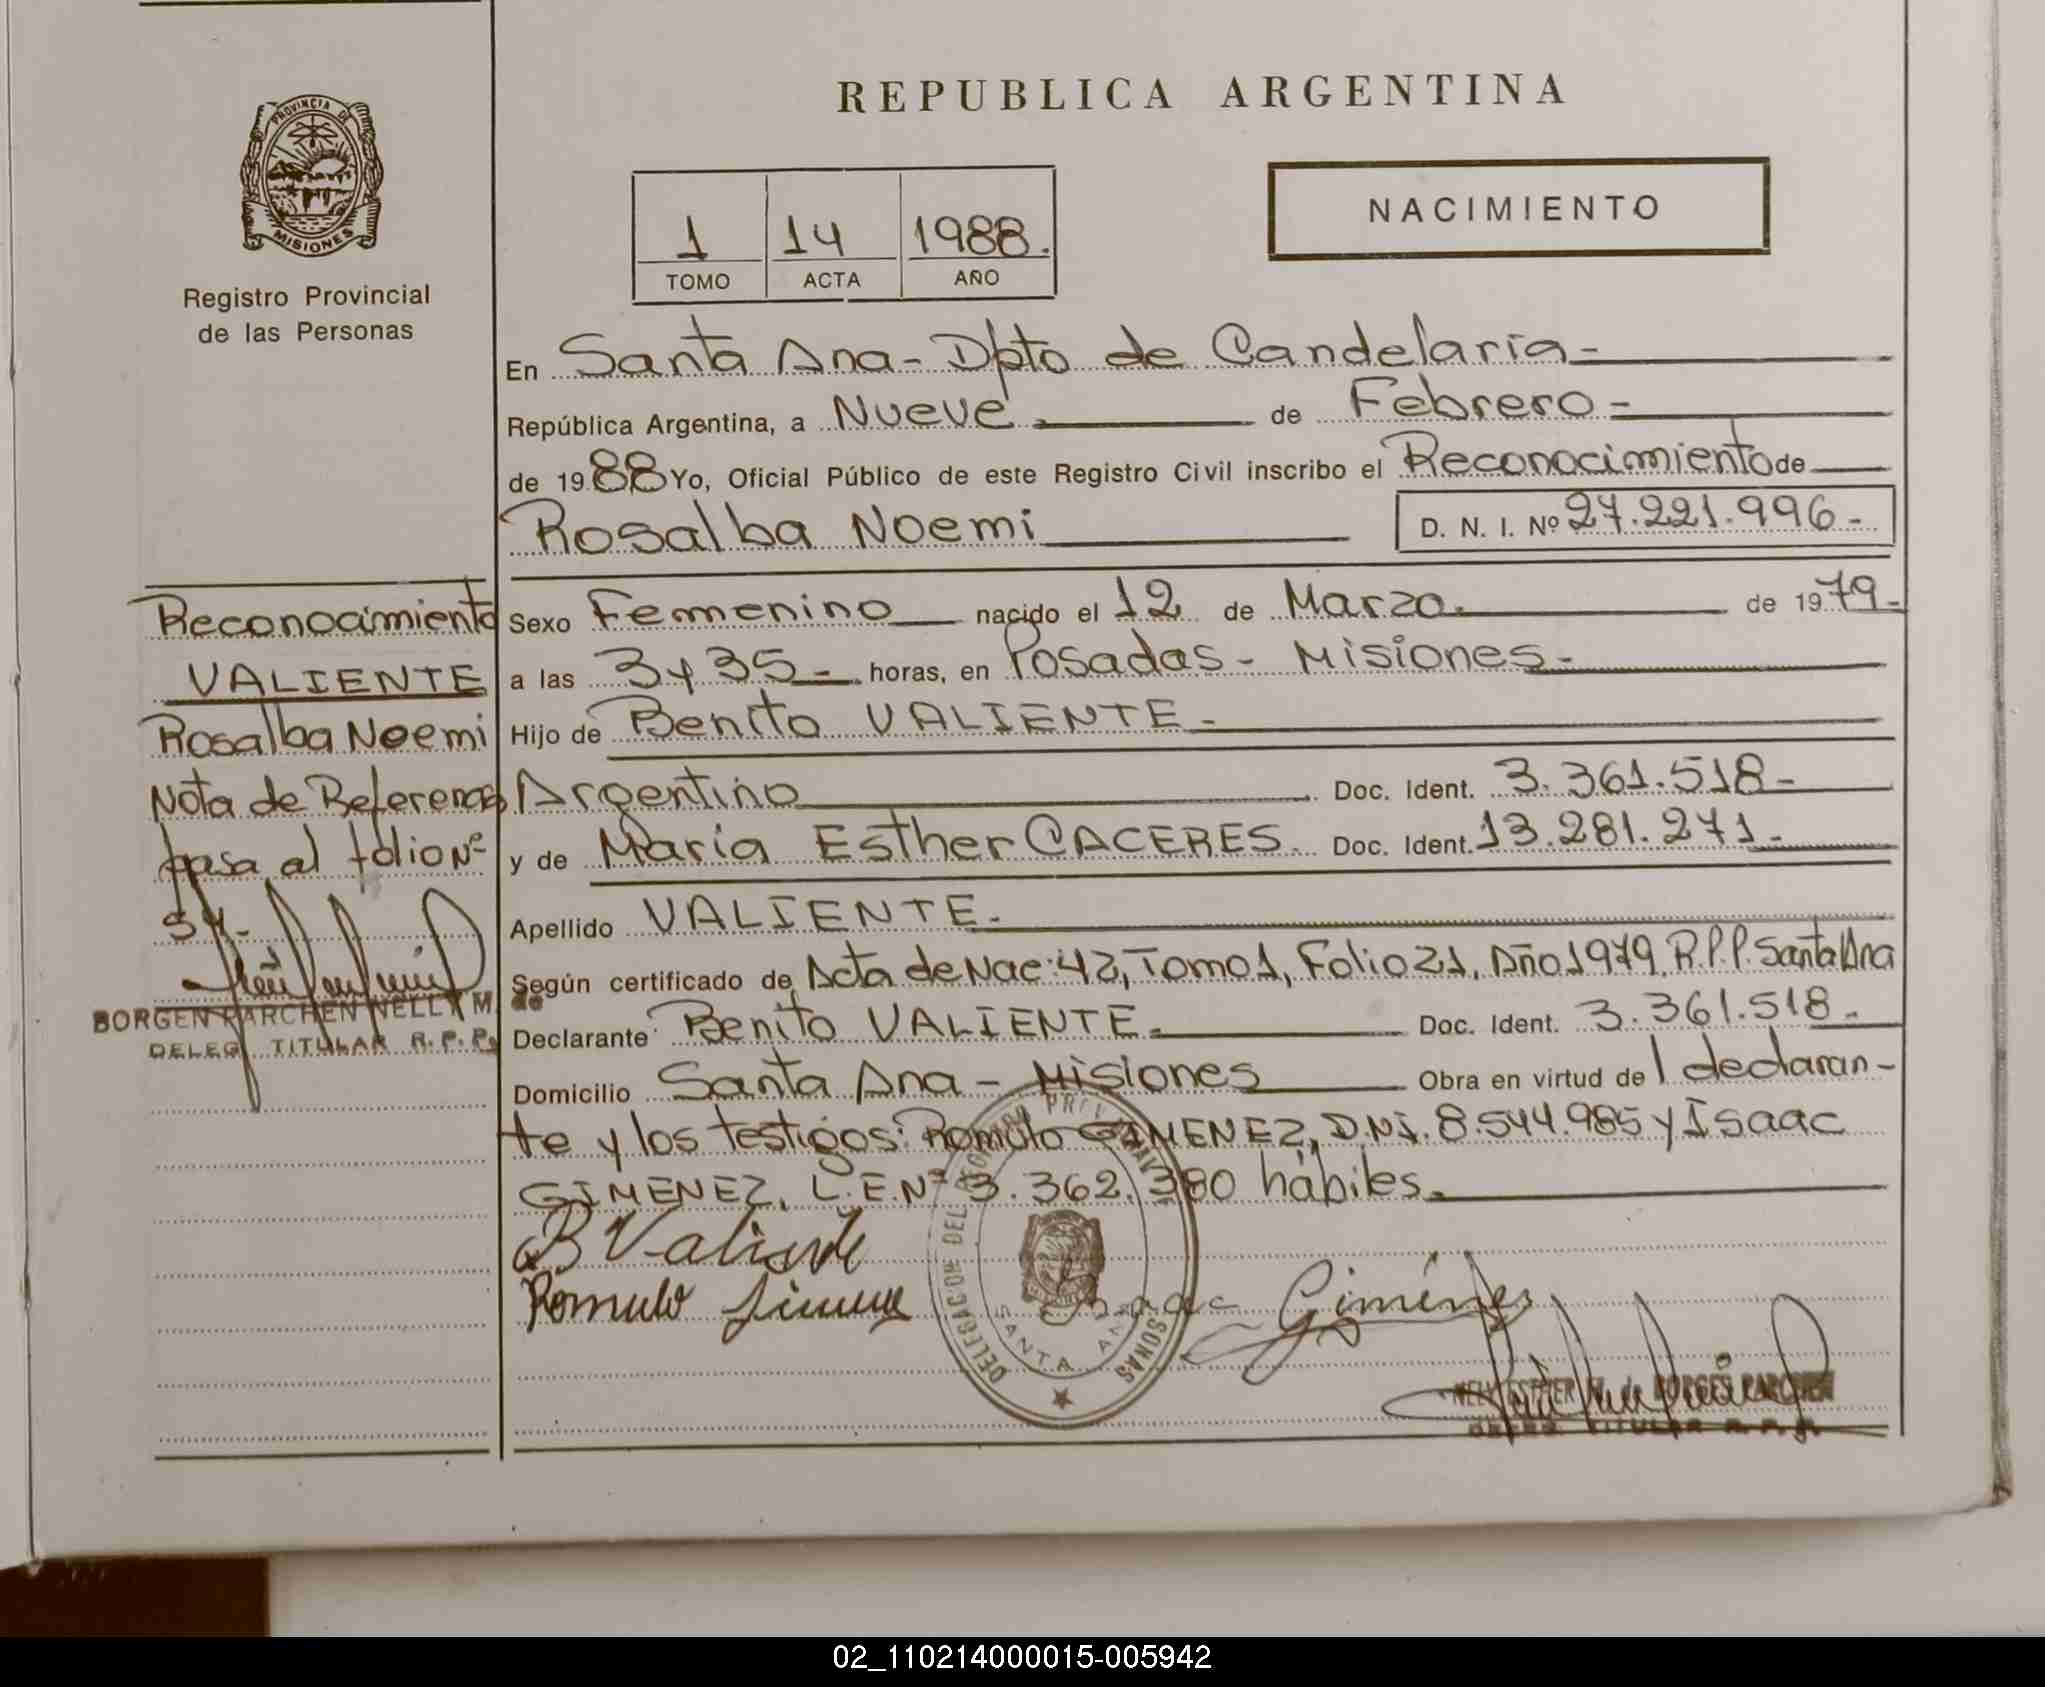 REPUBLICA ARGENTINA
PROVINCIA DE
MISIONES
Registro Provincial
de las Personas
NACIMIENTO
1 14 1988.
TOMO ACTA AÑO
En Santa Ana - Dpto de Candelaria -
República Argentina, a Nueve. de Febrero -
de 1988 Yo, Oficial Público de este Registro Civil inscribo el Reconocimiento de
Rosalba Noemi D. N. I. Nº 27.221.996 -
Sexo Femenino nacido el 12 de Marzo. de 1979 -
a las 3 y 35 - horas, en Posadas - Misiones -
Hijo de Benito VALIENTE -
Argentino Doc. Ident. 3.361.518 -
y de Maria Esther CACERES. Doc. Ident. 13.281.271 -
Apellido VALIENTE -
Según certificado de Acta de Nac: 42, Tomo 1, Folio 21, Año 1979, R.P.P. Santa Ana
Declarante Benito VALIENTE - Doc. Ident. 3.361.518 -
Domicilio Santa Ana - Misiones Obra en virtud de l declaran-
te y los testigos: Romulo GIMENEZ, D.N.I. 8.544.985 y Isaac
GIMENEZ, L.E.Nº 3.362.380 hábiles.
B Valiente
Romulo Isaac Giménez
SANTA ANA
BORGES PARCHEN
DELEG. TITULAR R.P.P.
Reconocimiento
VALIENTE
Rosalba Noemi
Nota de Referencia
pasa al folio Nº
54 -
BORGEN PARCHEN NELLY M. de
DELEG. TITULAR R.P.P.
02_110214000015-005942